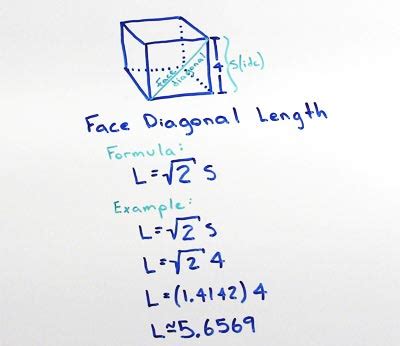 face
diagonal
4
s(ide)
Face Diagonal Length
Formula:
L=√2 s
Example:
L=√2 s
L=√2 4
L=(1.4142) 4
L≃5.6569